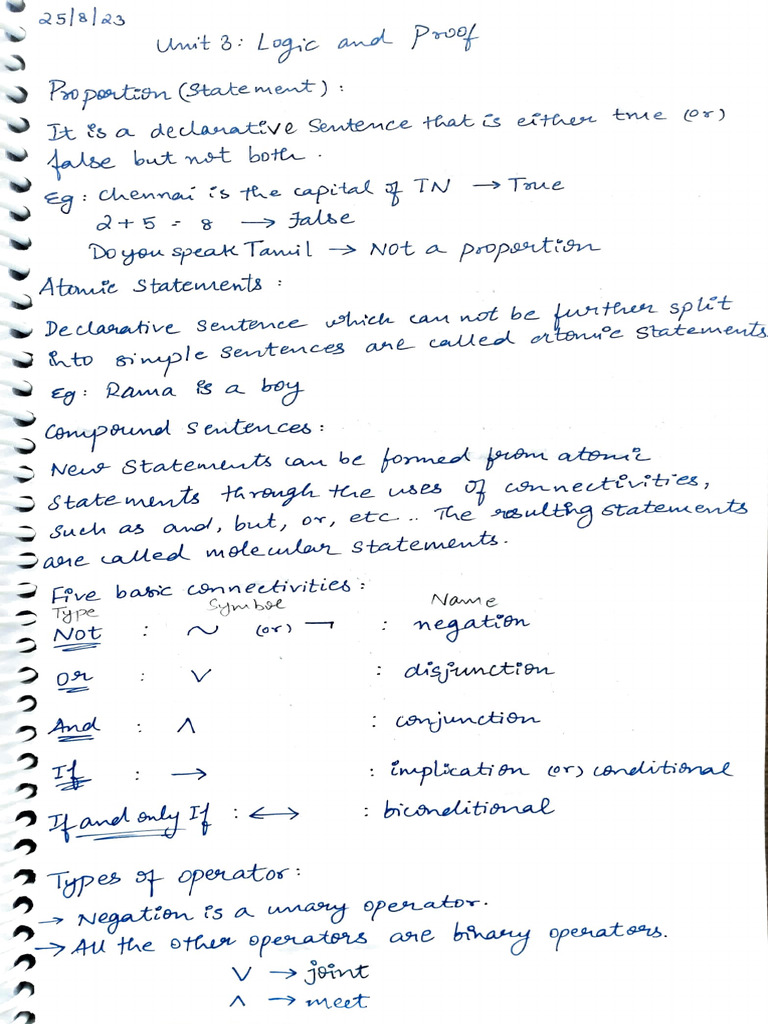 25/8/23
Unit 3: Logic and Proof
Proportion (Statement) :
It is a declarative sentence that is either true (or)
false but not both.
Eg : Chennai is the capital of TN → True
2 + 5 = 8 → False
Do you speak Tamil → Not a proportion
Atomic Statements :
Declarative sentence which can not be further split
into simple sentences are called atomic statements.
Eg : Rama is a boy
Compound Sentences :
New Statements can be formed from atomic
statements through the uses of connectivities,
such as and, but, or, etc .. The resulting statements
are called molecular statements.
Five basic connectivities :
Type Symbol Name
Not : ~ (or) ¬ : negation
Or : ∨ : disjunction
And : ∧ : conjunction
If : → : implication (or) conditional
If and only If : ↔ : biconditional
Types of operator :
→ Negation is a unary operator.
→ All the other operators are binary operators.
∨ → joint
∧ → meet